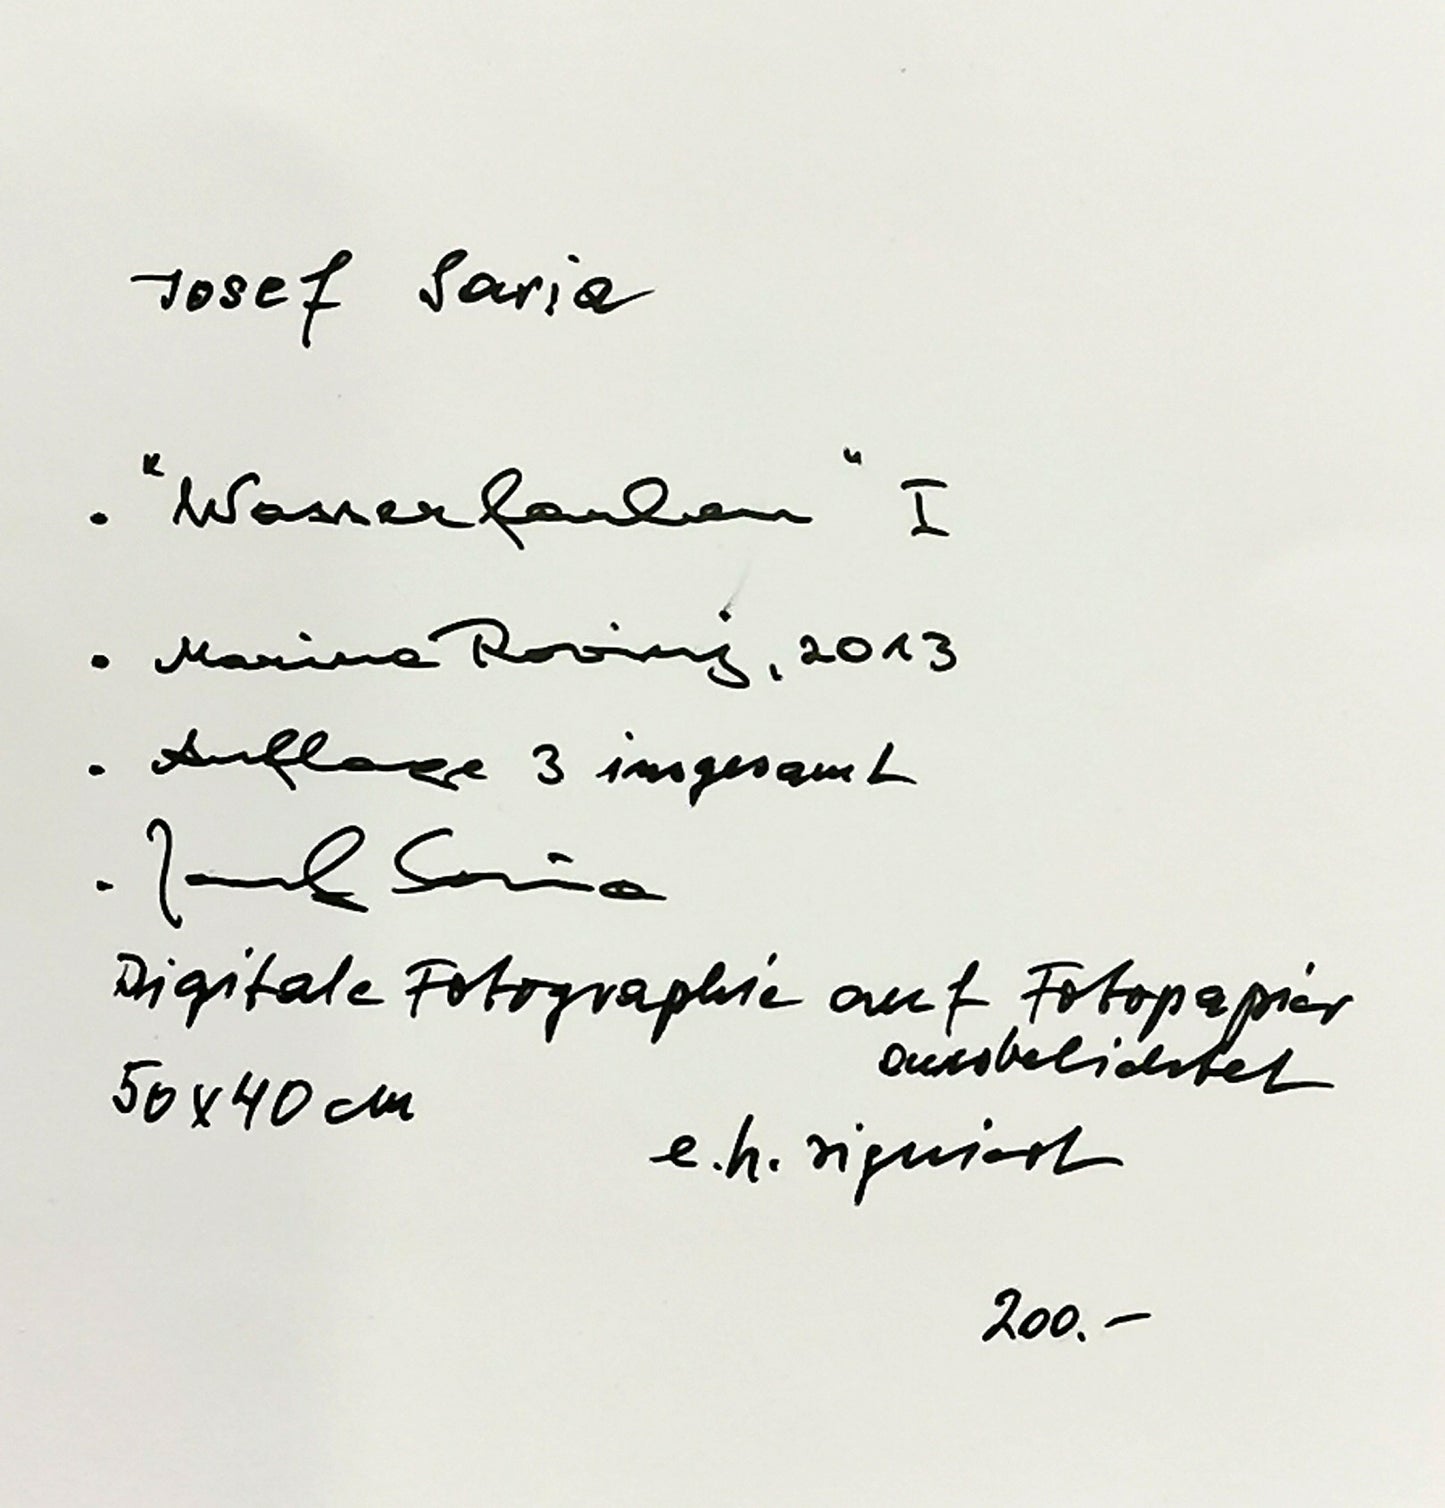 Josef Saria
• "Wasserfarben" I
• Marina Rovinj, 2013
• Auflage 3 insgesamt
• Josef Saria
Digitale Fotographie auf Fotopapier
ausbelichtet
50x40 cm
e.h. signiert
200.-